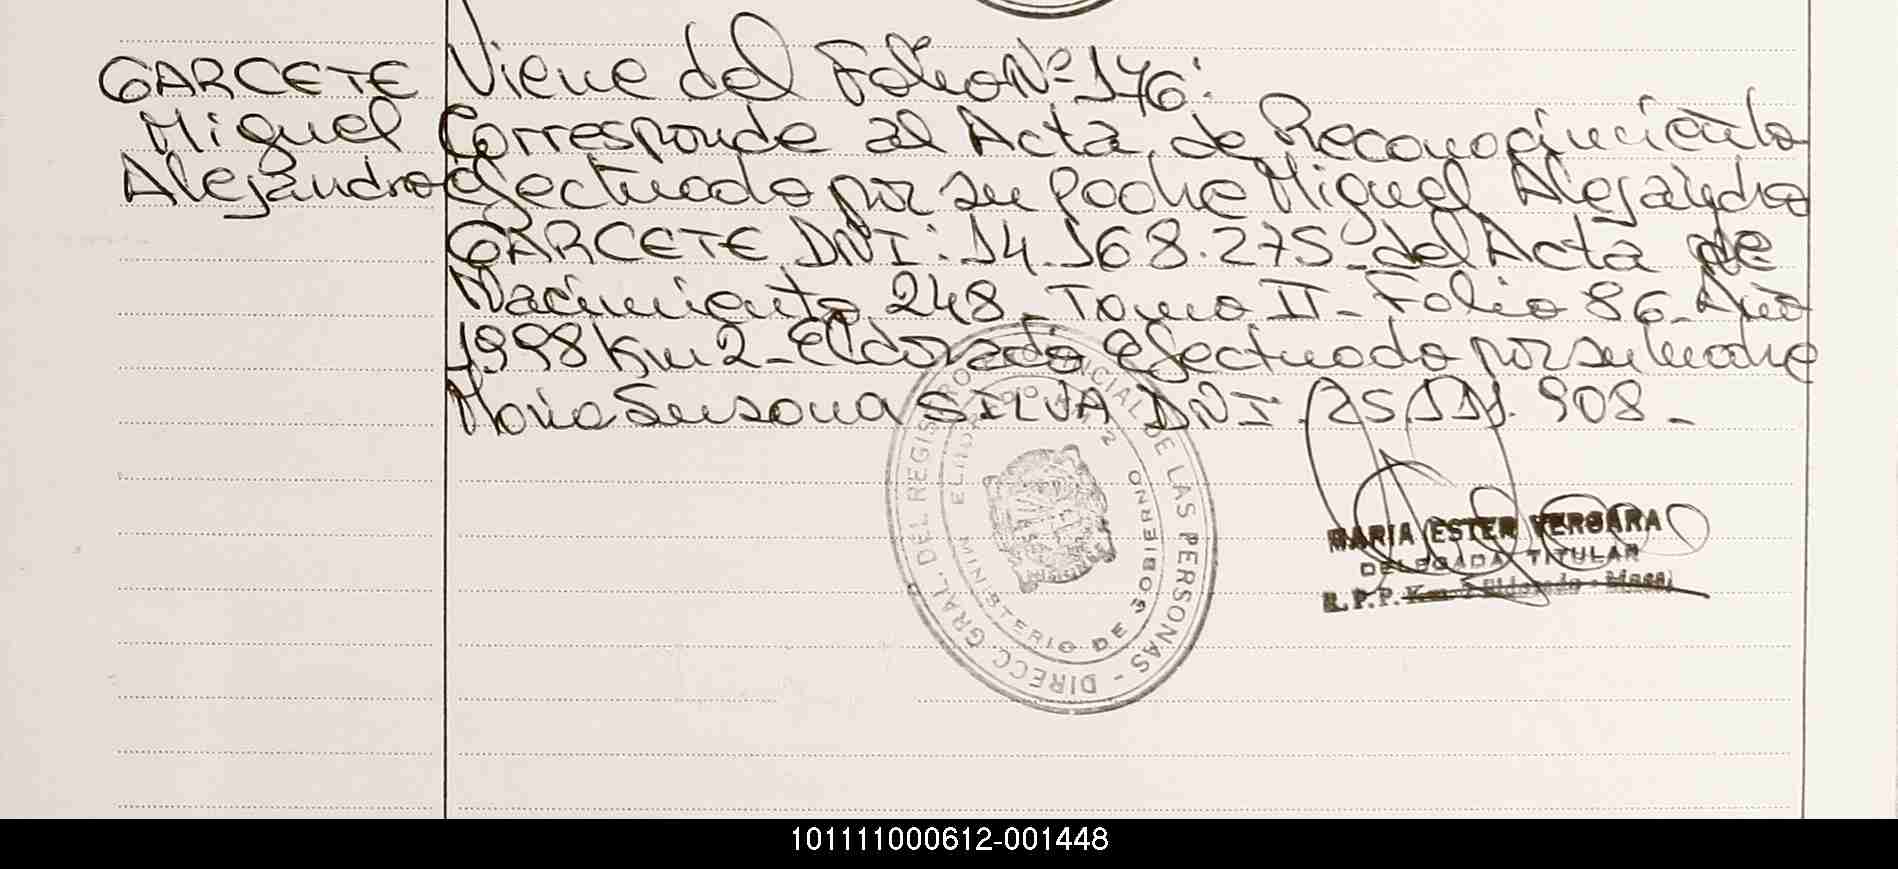 GARCETE
Miguel
Alejandro
Viene del Folio Nº 176:
Corresponde al Acta de Reconocimiento
efectuado por su padre Miguel Alejandro
GARCETE DNI: 14.168.275 del Acta de
Nacimiento 248 - Tomo II - Folio 86 - Año
1998 Km 2 - Eldorado efectuado por su madre
Maria Susana SILVA DNI 25.111.908 -
DIRECC. GRAL. DEL REGISTRO PROVINCIAL DE LAS PERSONAS -
MINISTERIO DE GOBIERNO
ELDORADO KM 2
MARIA ESTER VERGARA
DELEGADA TITULAR
R.P.P. Km. 2 Eldorado - Mnes.
101111000612-001448